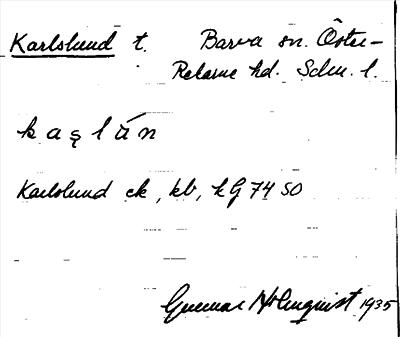 Karlslund t. Barva sn. Öster-
Rekarne hd. Södm. l.
kaşlún
Karlslund ek, kb, hG 74 50
Gunnar Holmquist 1935